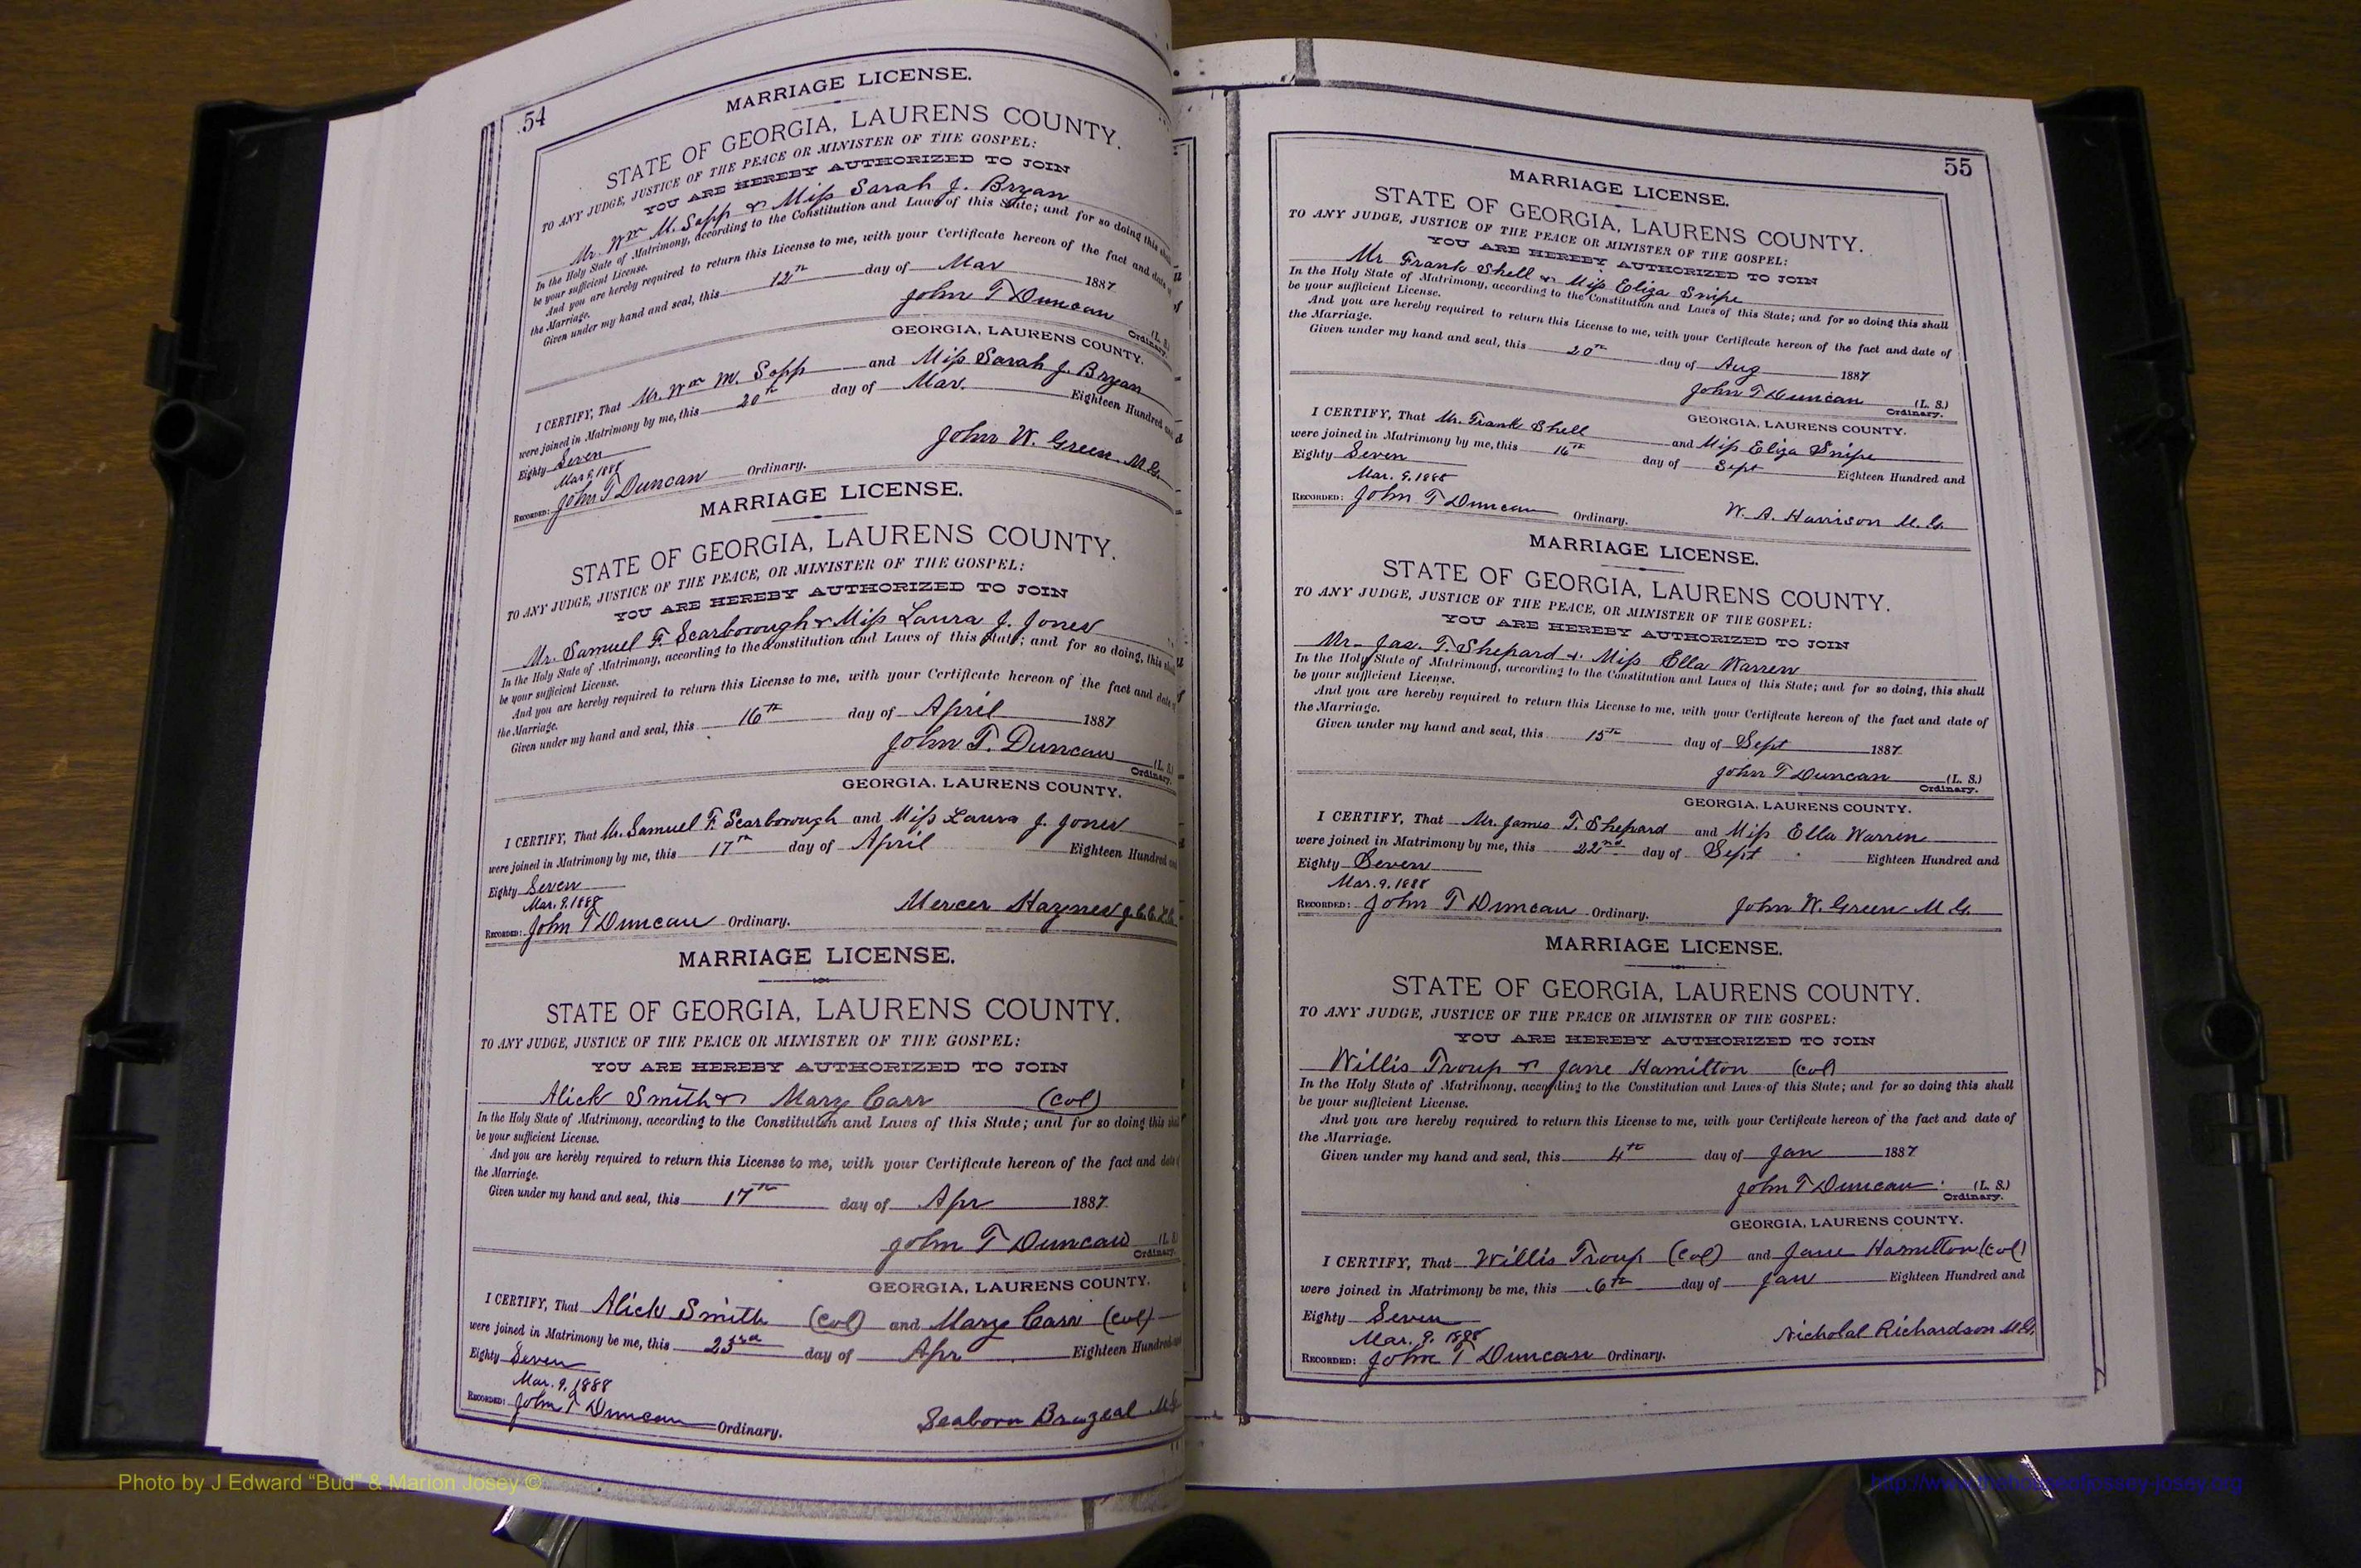 54
MARRIAGE LICENSE.
STATE OF GEORGIA, LAURENS COUNTY.
TO ANY JUDGE, JUSTICE OF THE PEACE OR MINISTER OF THE GOSPEL:
YOU ARE HEREBY AUTHORIZED TO JOIN
Mr. Wm M. Sapp & Miss Sarah J. Bryan
In the Holy State of Matrimony, according to the Constitution and Laws of this State; and for so doing this shall
be your sufficient License.
And you are hereby required to return this License to me, with your Certificate hereon of the fact and date of
the Marriage.
Given under my hand and seal, this 12th day of Mar 1887
John T Duncan (L. S.)
Ordinary.
GEORGIA, LAURENS COUNTY.
I CERTIFY, That Mr. Wm M. Sapp and Miss Sarah J. Bryan
were joined in Matrimony by me, this 20th day of Mar. Eighteen Hundred and
Eighty Seven
Mar 9, 1888 John W. Green M.G.
RECORDED: John T Duncan Ordinary.
MARRIAGE LICENSE.
STATE OF GEORGIA, LAURENS COUNTY.
TO ANY JUDGE, JUSTICE OF THE PEACE, OR MINISTER OF THE GOSPEL:
YOU ARE HEREBY AUTHORIZED TO JOIN
Mr. Samuel F. Scarborough & Miss Laura J. Jones
In the Holy State of Matrimony, according to the Constitution and Laws of this State; and for so doing, this shall
be your sufficient License.
And you are hereby required to return this License to me, with your Certificate hereon of the fact and date of
the Marriage.
Given under my hand and seal, this 16th day of April 1887
John T. Duncan (L. S.)
Ordinary.
GEORGIA. LAURENS COUNTY.
I CERTIFY, That Mr. Samuel F. Scarborough and Miss Laura J. Jones
were joined in Matrimony by me, this 17th day of April Eighteen Hundred and
Eighty Seven
Mar. 9, 1888 Mercer Haynes
RECORDED: John T Duncan Ordinary.
MARRIAGE LICENSE.
STATE OF GEORGIA, LAURENS COUNTY.
TO ANY JUDGE, JUSTICE OF THE PEACE OR MINISTER OF THE GOSPEL:
YOU ARE HEREBY AUTHORIZED TO JOIN
Alick Smith & Mary Carr (Col)
In the Holy State of Matrimony, according to the Constitution and Laws of this State; and for so doing this shall
be your sufficient License.
And you are hereby required to return this License to me, with your Certificate hereon of the fact and date of
the Marriage.
Given under my hand and seal, this 17th day of Apr 1887
John T Duncan (L. S.)
Ordinary.
GEORGIA, LAURENS COUNTY.
I CERTIFY, That Alick Smith (Col) and Mary Carr (Col)
were joined in Matrimony be me, this 23rd day of Apr Eighteen Hundred and
Eighty Seven
Mar. 9, 1888
RECORDED: John T Duncan Ordinary. Seaborn Brazeal M.G.
55
MARRIAGE LICENSE.
STATE OF GEORGIA, LAURENS COUNTY.
TO ANY JUDGE, JUSTICE OF THE PEACE OR MINISTER OF THE GOSPEL:
YOU ARE HEREBY AUTHORIZED TO JOIN
Mr Frank Shell & Miss Eliza Snipe
In the Holy State of Matrimony, according to the Constitution and Laws of this State; and for so doing this shall
be your sufficient License.
And you are hereby required to return this License to me, with your Certificate hereon of the fact and date of
the Marriage.
Given under my hand and seal, this 20th day of Aug 1887
John T Duncan (L. S.)
Ordinary.
GEORGIA, LAURENS COUNTY.
I CERTIFY, That Mr. Frank Shell and Miss Eliza Snipe
were joined in Matrimony by me, this 16th day of Sept Eighteen Hundred and
Eighty Seven
Mar. 9, 1888
RECORDED: John T Duncan Ordinary. W. A. Harrison M. G.
MARRIAGE LICENSE.
STATE OF GEORGIA, LAURENS COUNTY.
TO ANY JUDGE, JUSTICE OF THE PEACE, OR MINISTER OF THE GOSPEL:
YOU ARE HEREBY AUTHORIZED TO JOIN
Mr. Jas. T. Shepard & Miss Ella Warren
In the Holy State of Matrimony, according to the Constitution and Laws of this State; and for so doing, this shall
be your sufficient License.
And you are hereby required to return this License to me, with your Certificate hereon of the fact and date of
the Marriage.
Given under my hand and seal, this 15th day of Sept 1887
John T Duncan (L. S.)
Ordinary.
GEORGIA. LAURENS COUNTY.
I CERTIFY, That Mr. James T. Shepard and Miss Ella Warren
were joined in Matrimony by me, this 22nd day of Sept Eighteen Hundred and
Eighty Seven
Mar. 9, 1888
RECORDED: John T Duncan Ordinary. John W. Green M G.
MARRIAGE LICENSE.
STATE OF GEORGIA, LAURENS COUNTY.
TO ANY JUDGE, JUSTICE OF THE PEACE OR MINISTER OF THE GOSPEL:
YOU ARE HEREBY AUTHORIZED TO JOIN
Willis Troup & Jane Hamilton (Col)
In the Holy State of Matrimony, according to the Constitution and Laws of this State; and for so doing this shall
be your sufficient License.
And you are hereby required to return this License to me, with your Certificate hereon of the fact and date of
the Marriage.
Given under my hand and seal, this 4th day of Jan 1887
John T Duncan (L. S.)
Ordinary.
GEORGIA, LAURENS COUNTY.
I CERTIFY, That Willis Troup (Col) and Jane Hamilton (Col)
were joined in Matrimony be me, this 6th day of Jan Eighteen Hundred and
Eighty Seven
Mar. 9, 1888 Nicholal Richardson M.G.
RECORDED: John T Duncan Ordinary.
Photo by J Edward "Bud" & Marion Josey ©
http://www.thehouseofjossey-josey.org